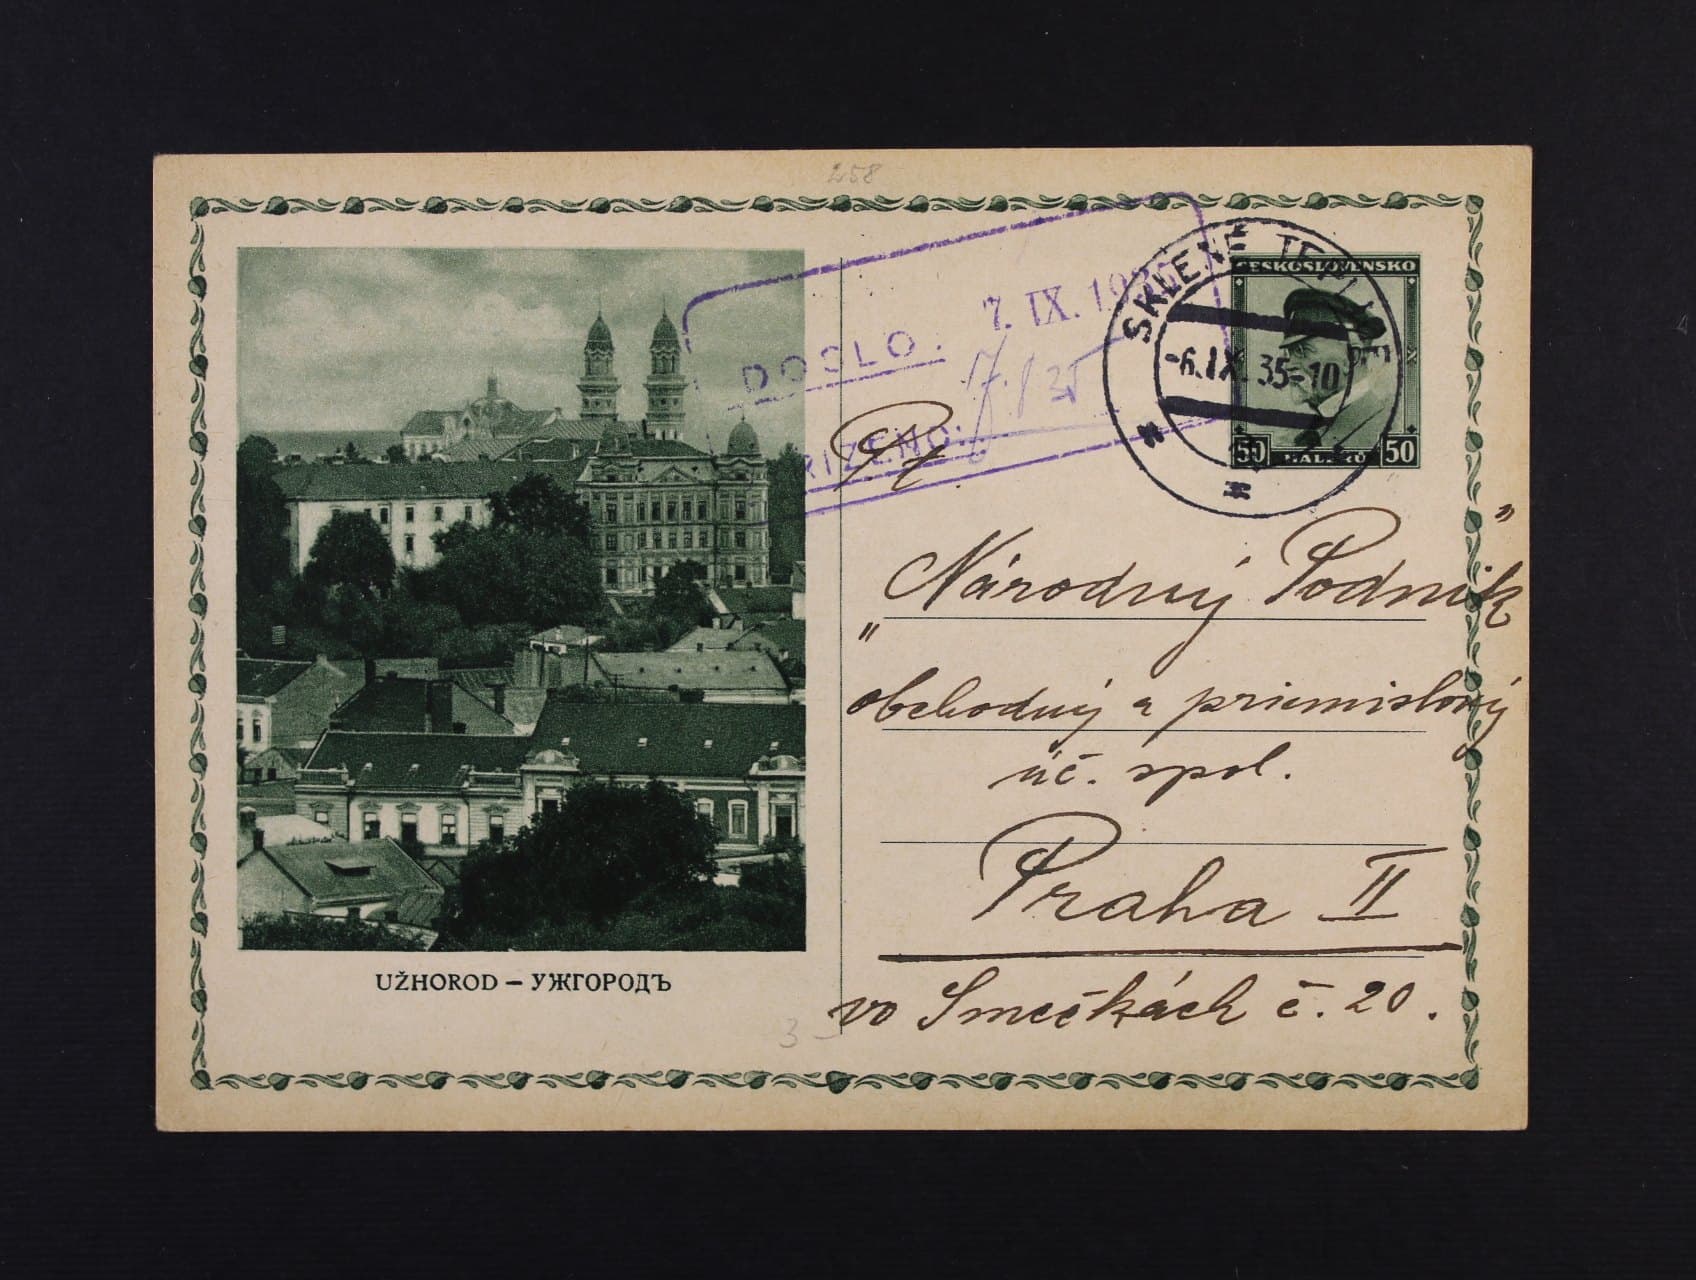 258
DOŠLO:
7. IX. 193
7./35
ŘÍZENO:
SKLENÉ TEPLICE
-6.IX.35-10
ČESKOSLOVENSKO
50 HALÉŘŮ 50
Pt.
„Národný Podnik"
obchodný a priemislový
úč. spol.
Praha II
vo Smečkách č. 20.
UŽHOROD – УЖГОРОДЪ
3 –